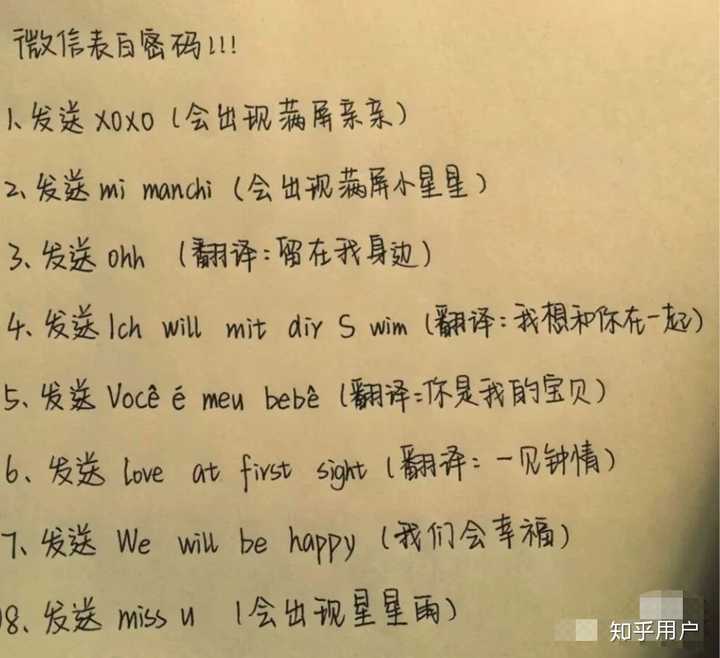 微信表白密码!!!
1、发送 xoxo (会出现满屏亲亲)
2、发送 mi manchi (会出现满屏小星星)
3、发送 ohh (翻译:留在我身边)
4、发送 Ich will mit dir S wim (翻译:我想和你在一起)
5、发送 Você é meu bebê (翻译:你是我的宝贝)
6、发送 love at first sight (翻译:一见钟情)
7、发送 We will be happy (我们会幸福)
8、发送 miss u (会出现星星雨)
知乎用户